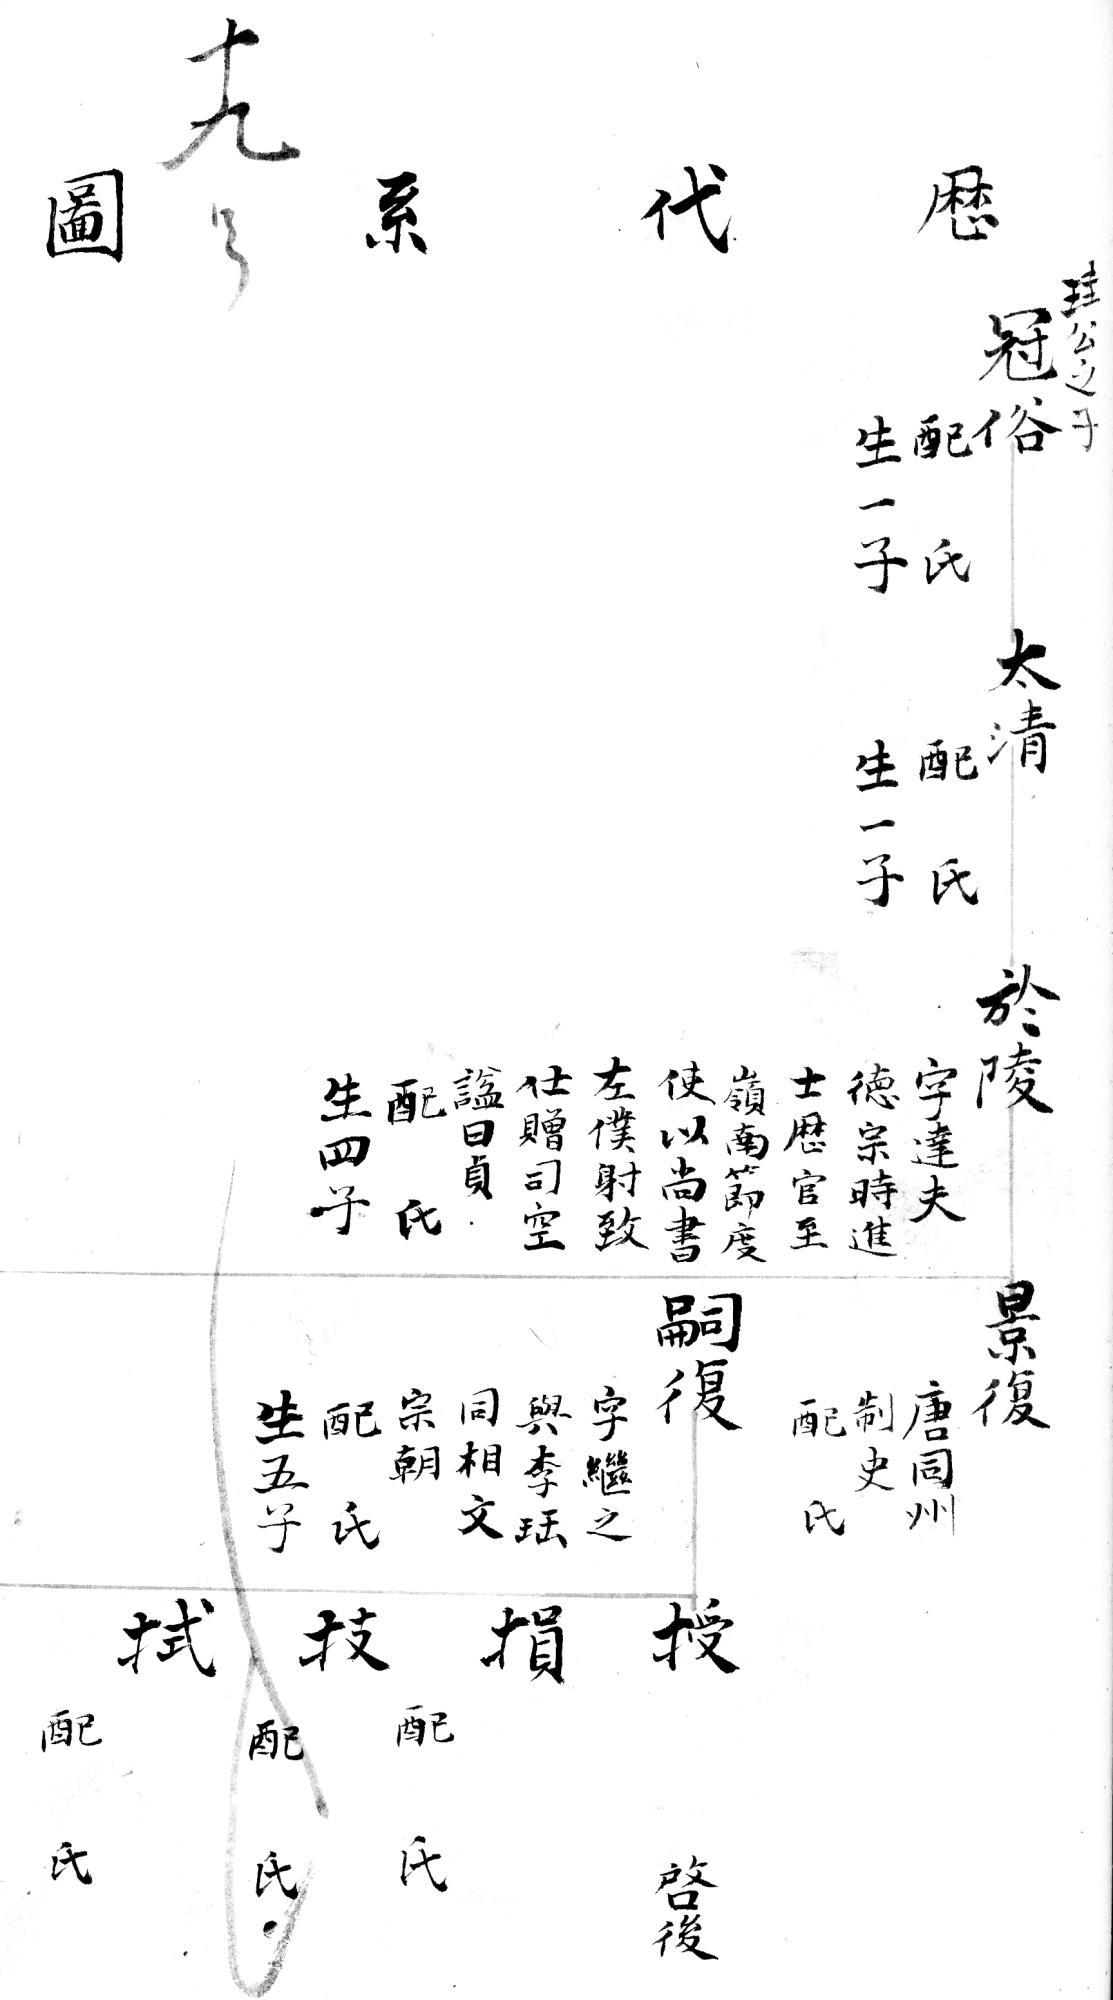 歷代系圖
十九号
珪公之子
冠俗
配 氏
生一子
太清
配 氏
生一子
於陵
字達夫
德宗時進
士歷官至
嶺南節度
使以尚書
左僕射致
仕贈司空
諡曰貞
配 氏
生四子
景復
唐同州
制史
配 氏
嗣復
字繼之
與李珏
同相文
宗朝
配 氏
生五子
授
啓後
損
配 氏
技
配 氏
拭
配 氏